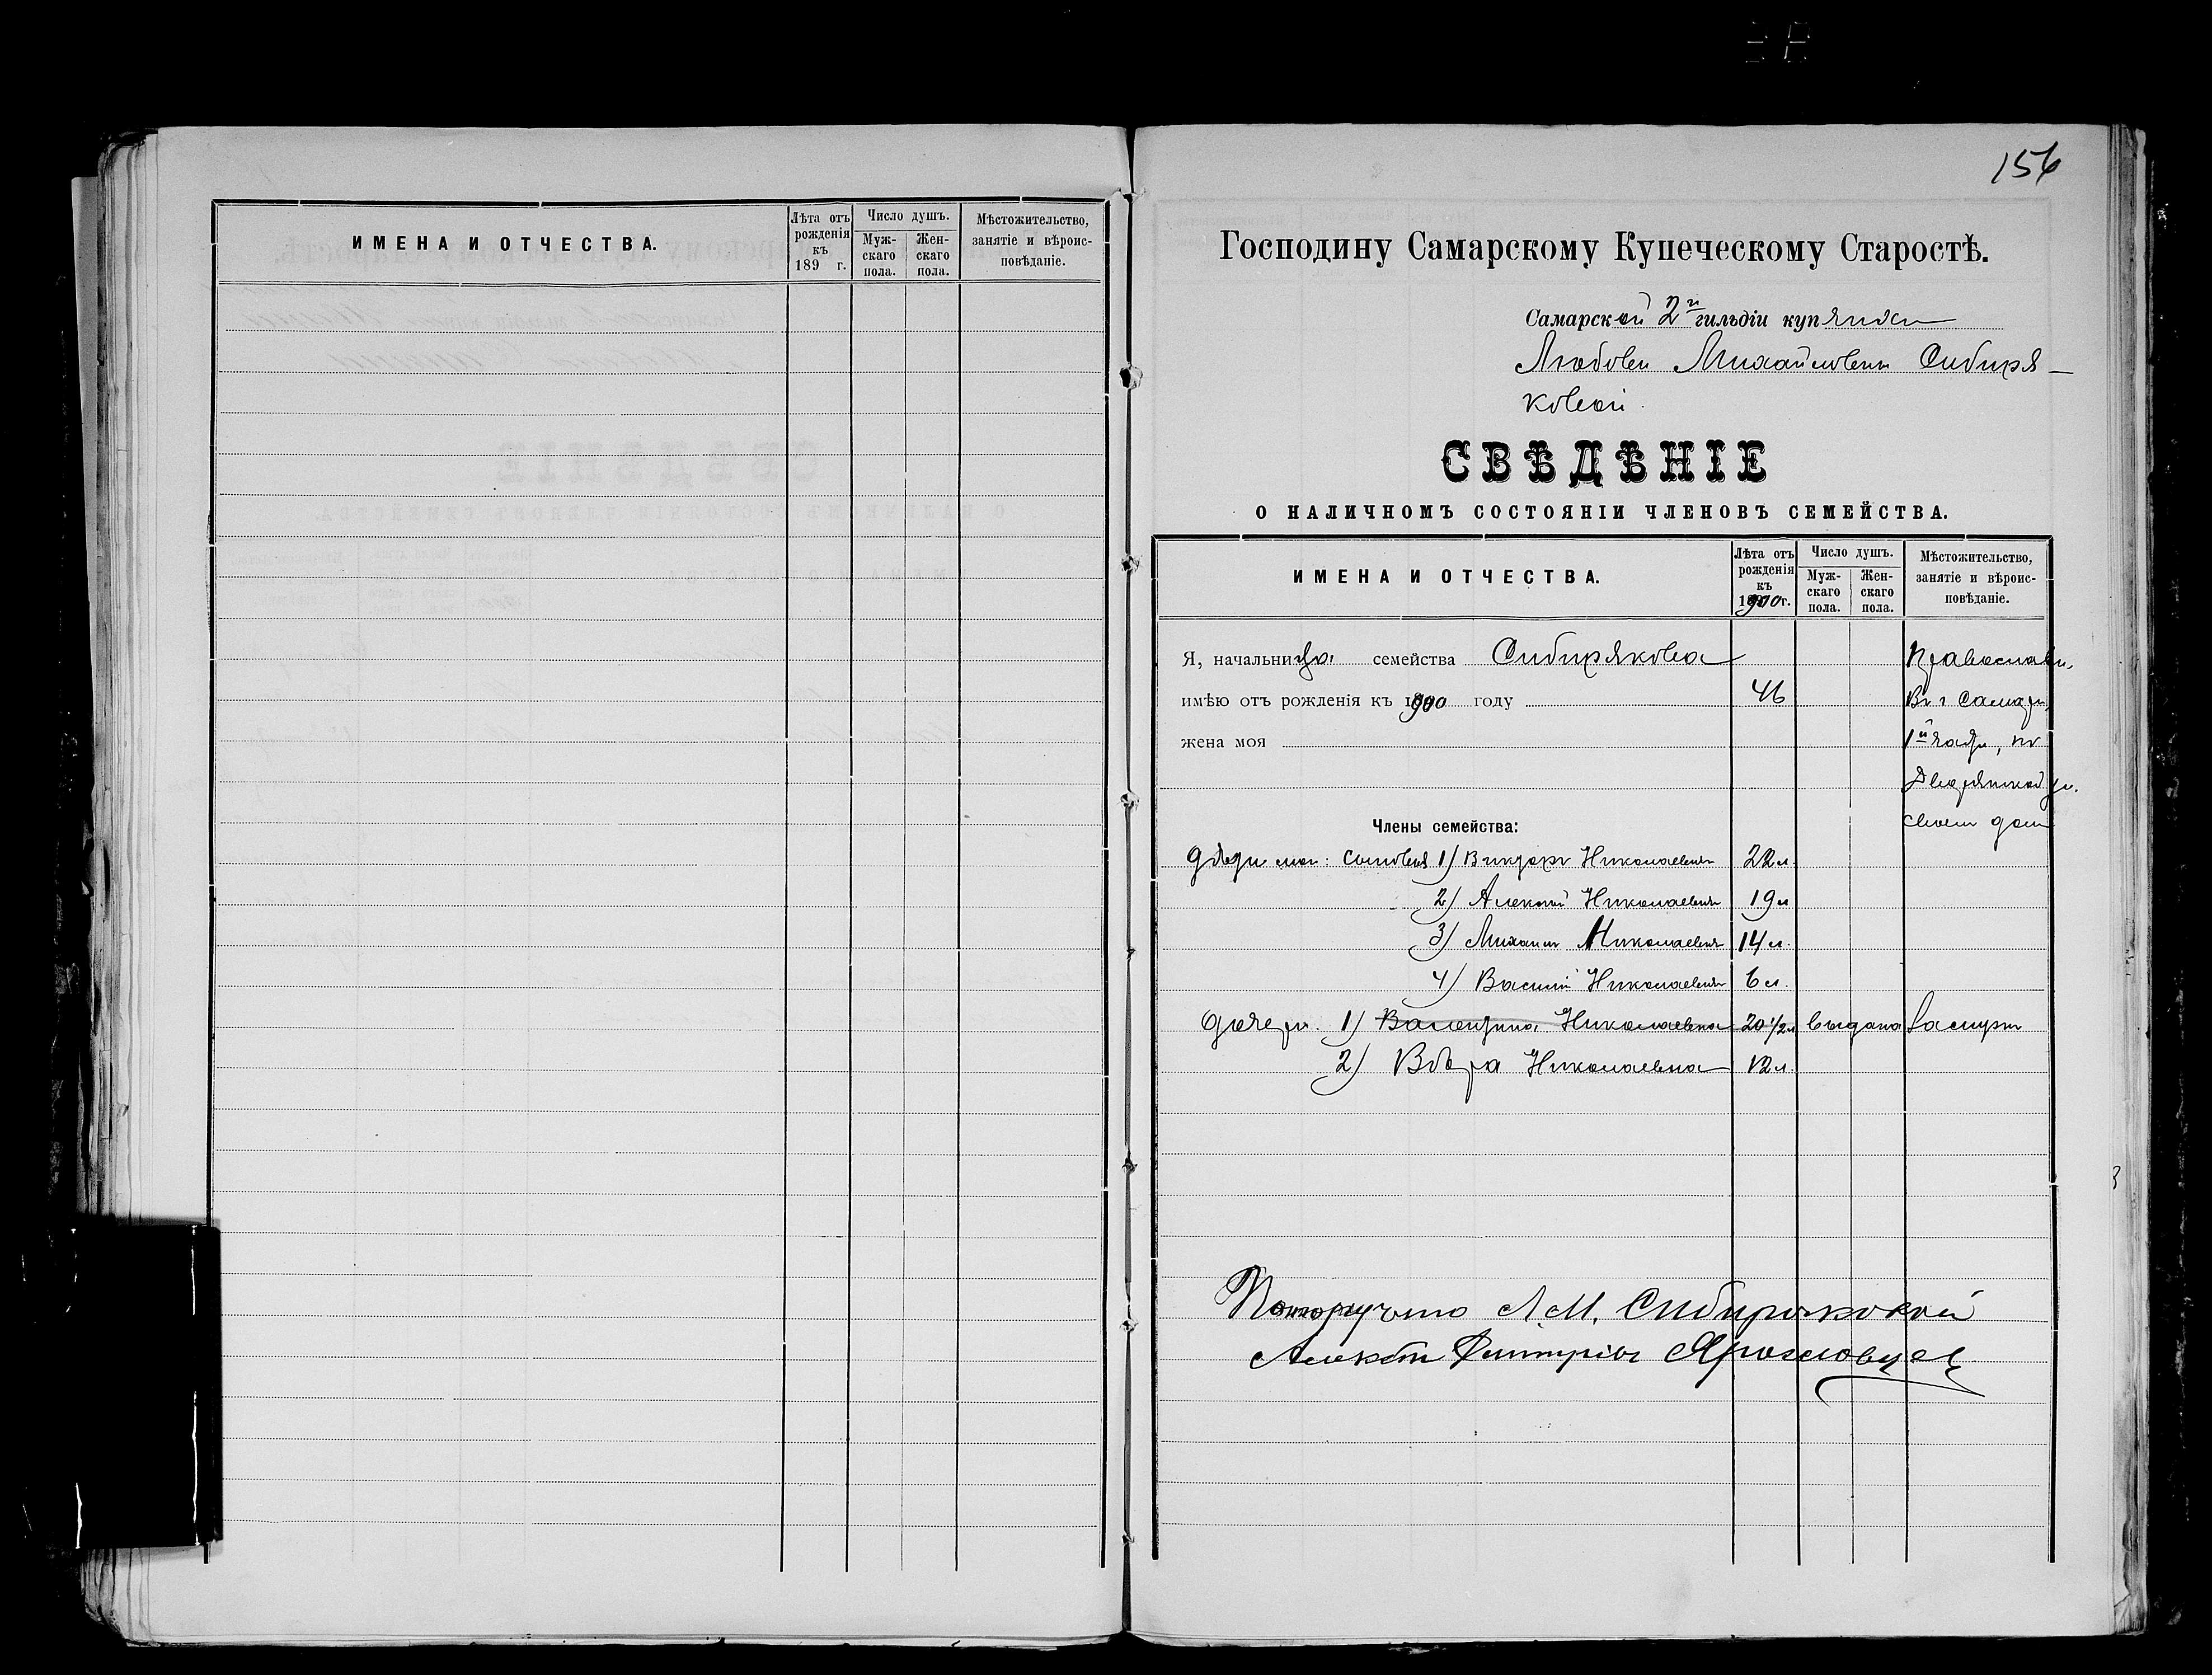 ИМЕНА И ОТЧЕСТВА.
Лѣта отъ рожденія къ 189 г.
Число душъ.
Мужскаго пола.
Женскаго пола.
Мѣстожительство, занятіе и вѣроисповѣданіе.
156
Господину Самарскому Купеческому Старостѣ.
Самарской 2й гильдіи купчихи
Любови Михайловны Сибиря-
ковой.
СВѢДѢНІЕ
О НАЛИЧНОМЪ СОСТОЯНІИ ЧЛЕНОВЪ СЕМЕЙСТВА.
ИМЕНА И ОТЧЕСТВА.
Лѣта отъ рожденія къ 1900 г.
Число душъ.
Мужскаго пола.
Женскаго пола.
Мѣстожительство, занятіе и вѣроисповѣданіе.
Я, начальница семейства Сибирякова Православн.
имѣю отъ рожденія къ 1900 году 46 Въ г Самарѣ,
жена моя 1й части, по
Дворянской ул.
своем дом
Члены семейства:
Дѣти мои: сыновья 1) Викторъ Николаевичъ 22 л.
2) Алексѣй Николаевичъ 19 л
3) Михаилъ Николаевичъ 14 л.
4) Василій Николаевичъ 6 л.
Дочери. 1) Валентина Николаевна 20 1/2 л выдана замужъ
2) Вѣра Николаевна 12 л.
По доверію Л. М. Сибиряковой
Дмитріевъ Ярославцев